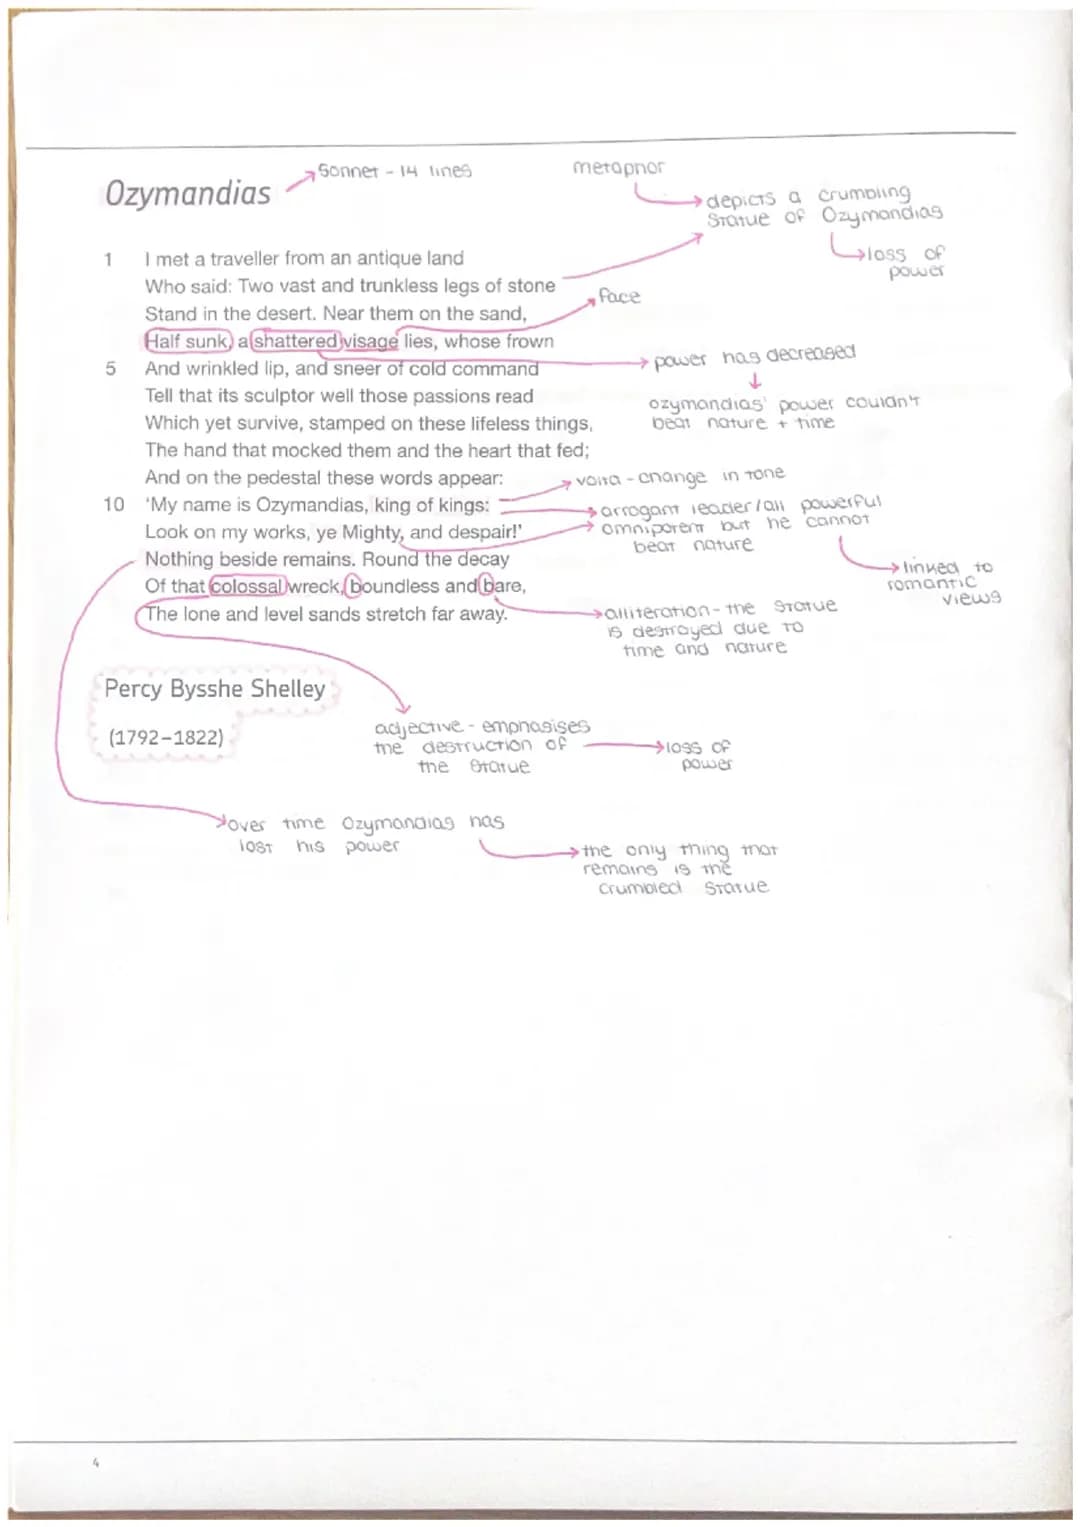 Sonnet - 14 lines
metaphor
Ozymandias
depicts a crumbling
statue of Ozymandias
loss of
power
1 I met a traveller from an antique land
Who said: Two vast and trunkless legs of stone
face
Stand in the desert. Near them on the sand,
Half sunk, a shattered visage lies, whose frown
power has decreased
5 And wrinkled lip, and sneer of cold command
Tell that its sculptor well those passions read
ozymandias' power couldn't
beat nature + time
Which yet survive, stamped on these lifeless things,
The hand that mocked them and the heart that fed;
And on the pedestal these words appear:
volta - change in tone
10 'My name is Ozymandias, king of kings:
arrogant leader/all powerful
omnipotent but he cannot
beat nature
Look on my works, ye Mighty, and despair!'
Nothing beside remains. Round the decay
linked to
romantic
views
Of that colossal wreck, boundless and bare,
The lone and level sands stretch far away.
alliteration - the statue
is destroyed due to
time and nature
Percy Bysshe Shelley
(1792–1822)
adjective - emphasises
the destruction of
the statue
loss of
power
over time Ozymandias has
lost his power
the only thing that
remains is the
crumbled statue
4